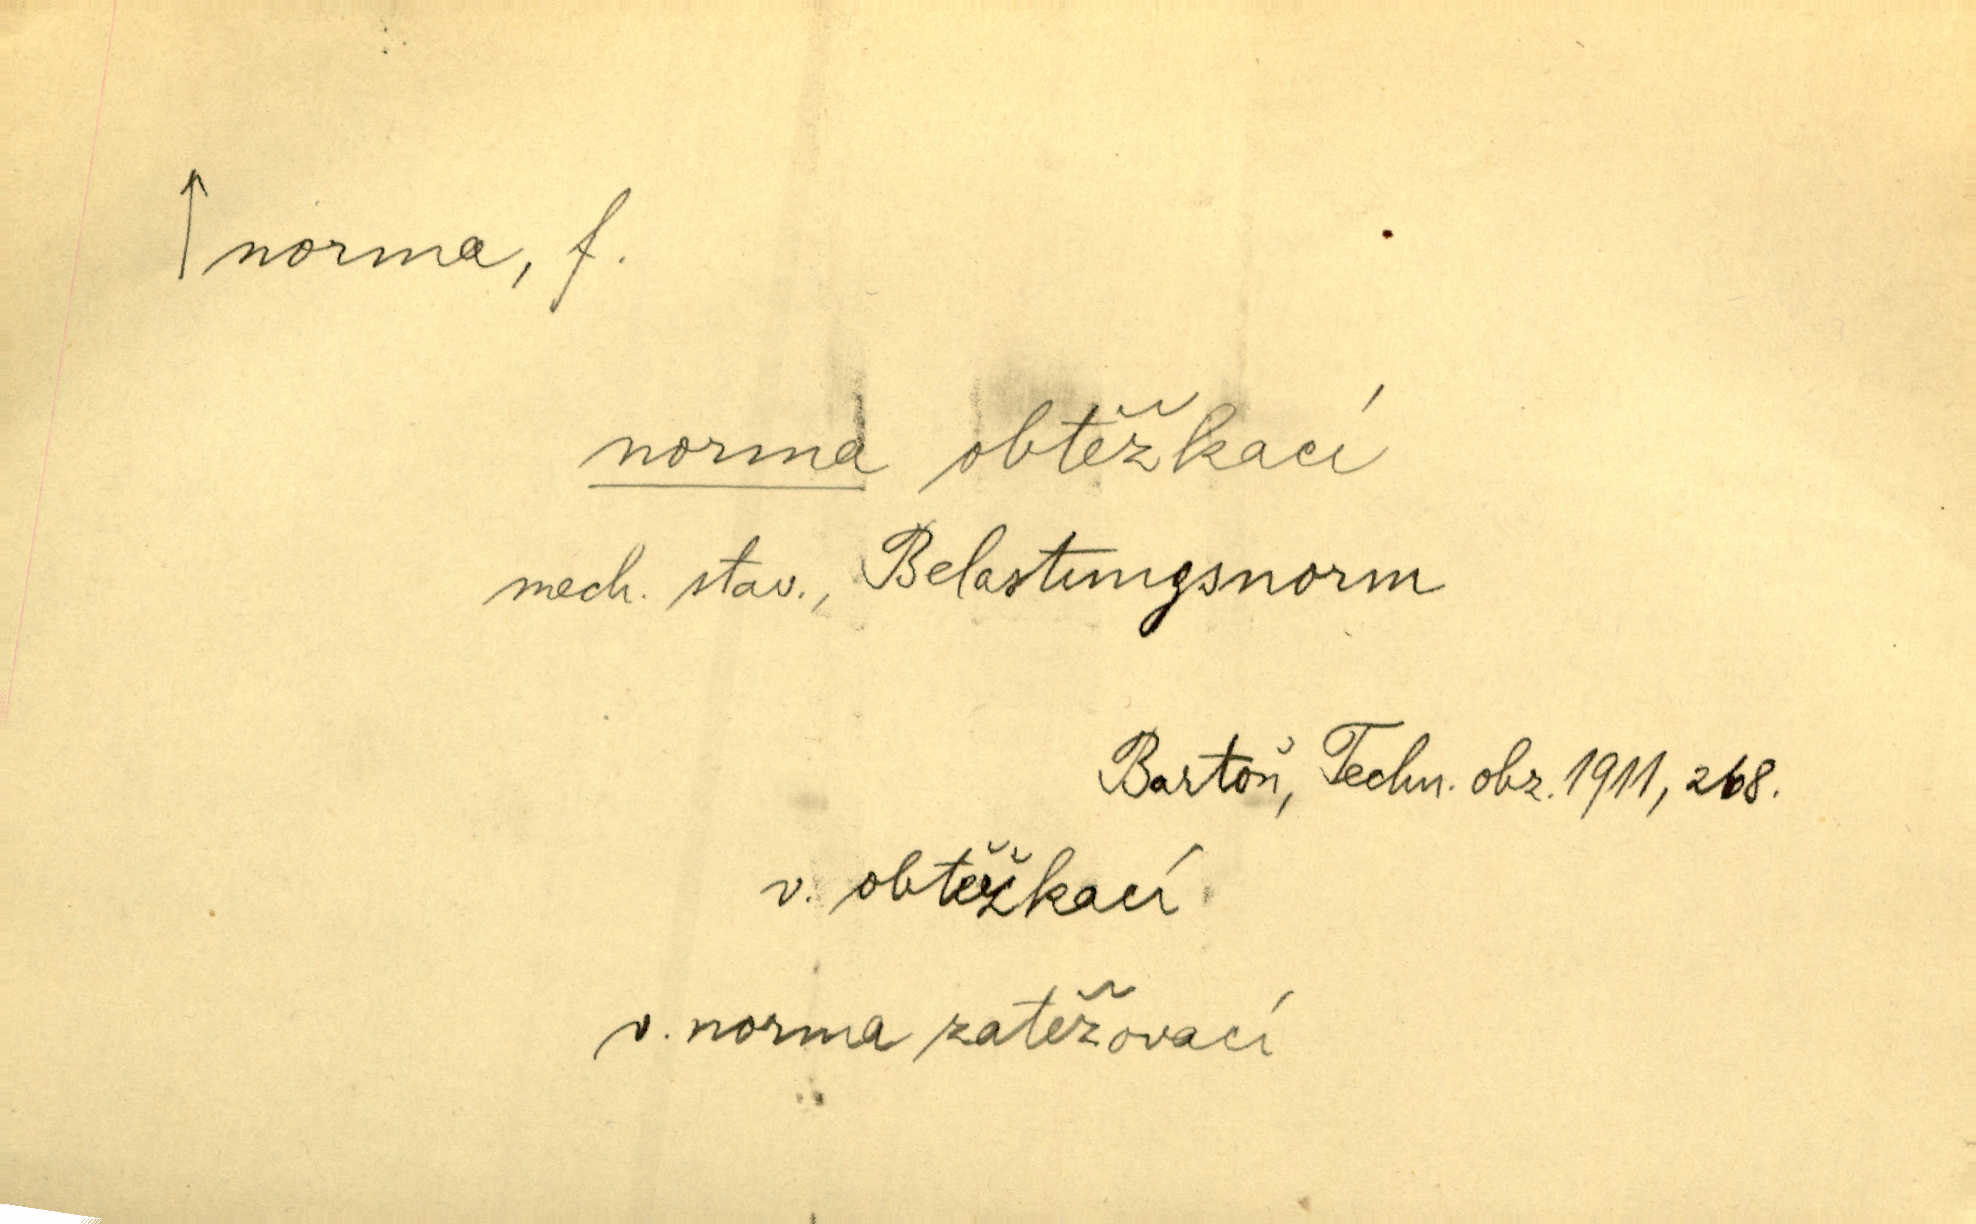 ↑ norma, f.
norma obtěžkací
mech. stav., Belastungsnorm
Bartoň, Techn. obz. 1911, 268.
v. obtěžkací
v. norma zatěžovací